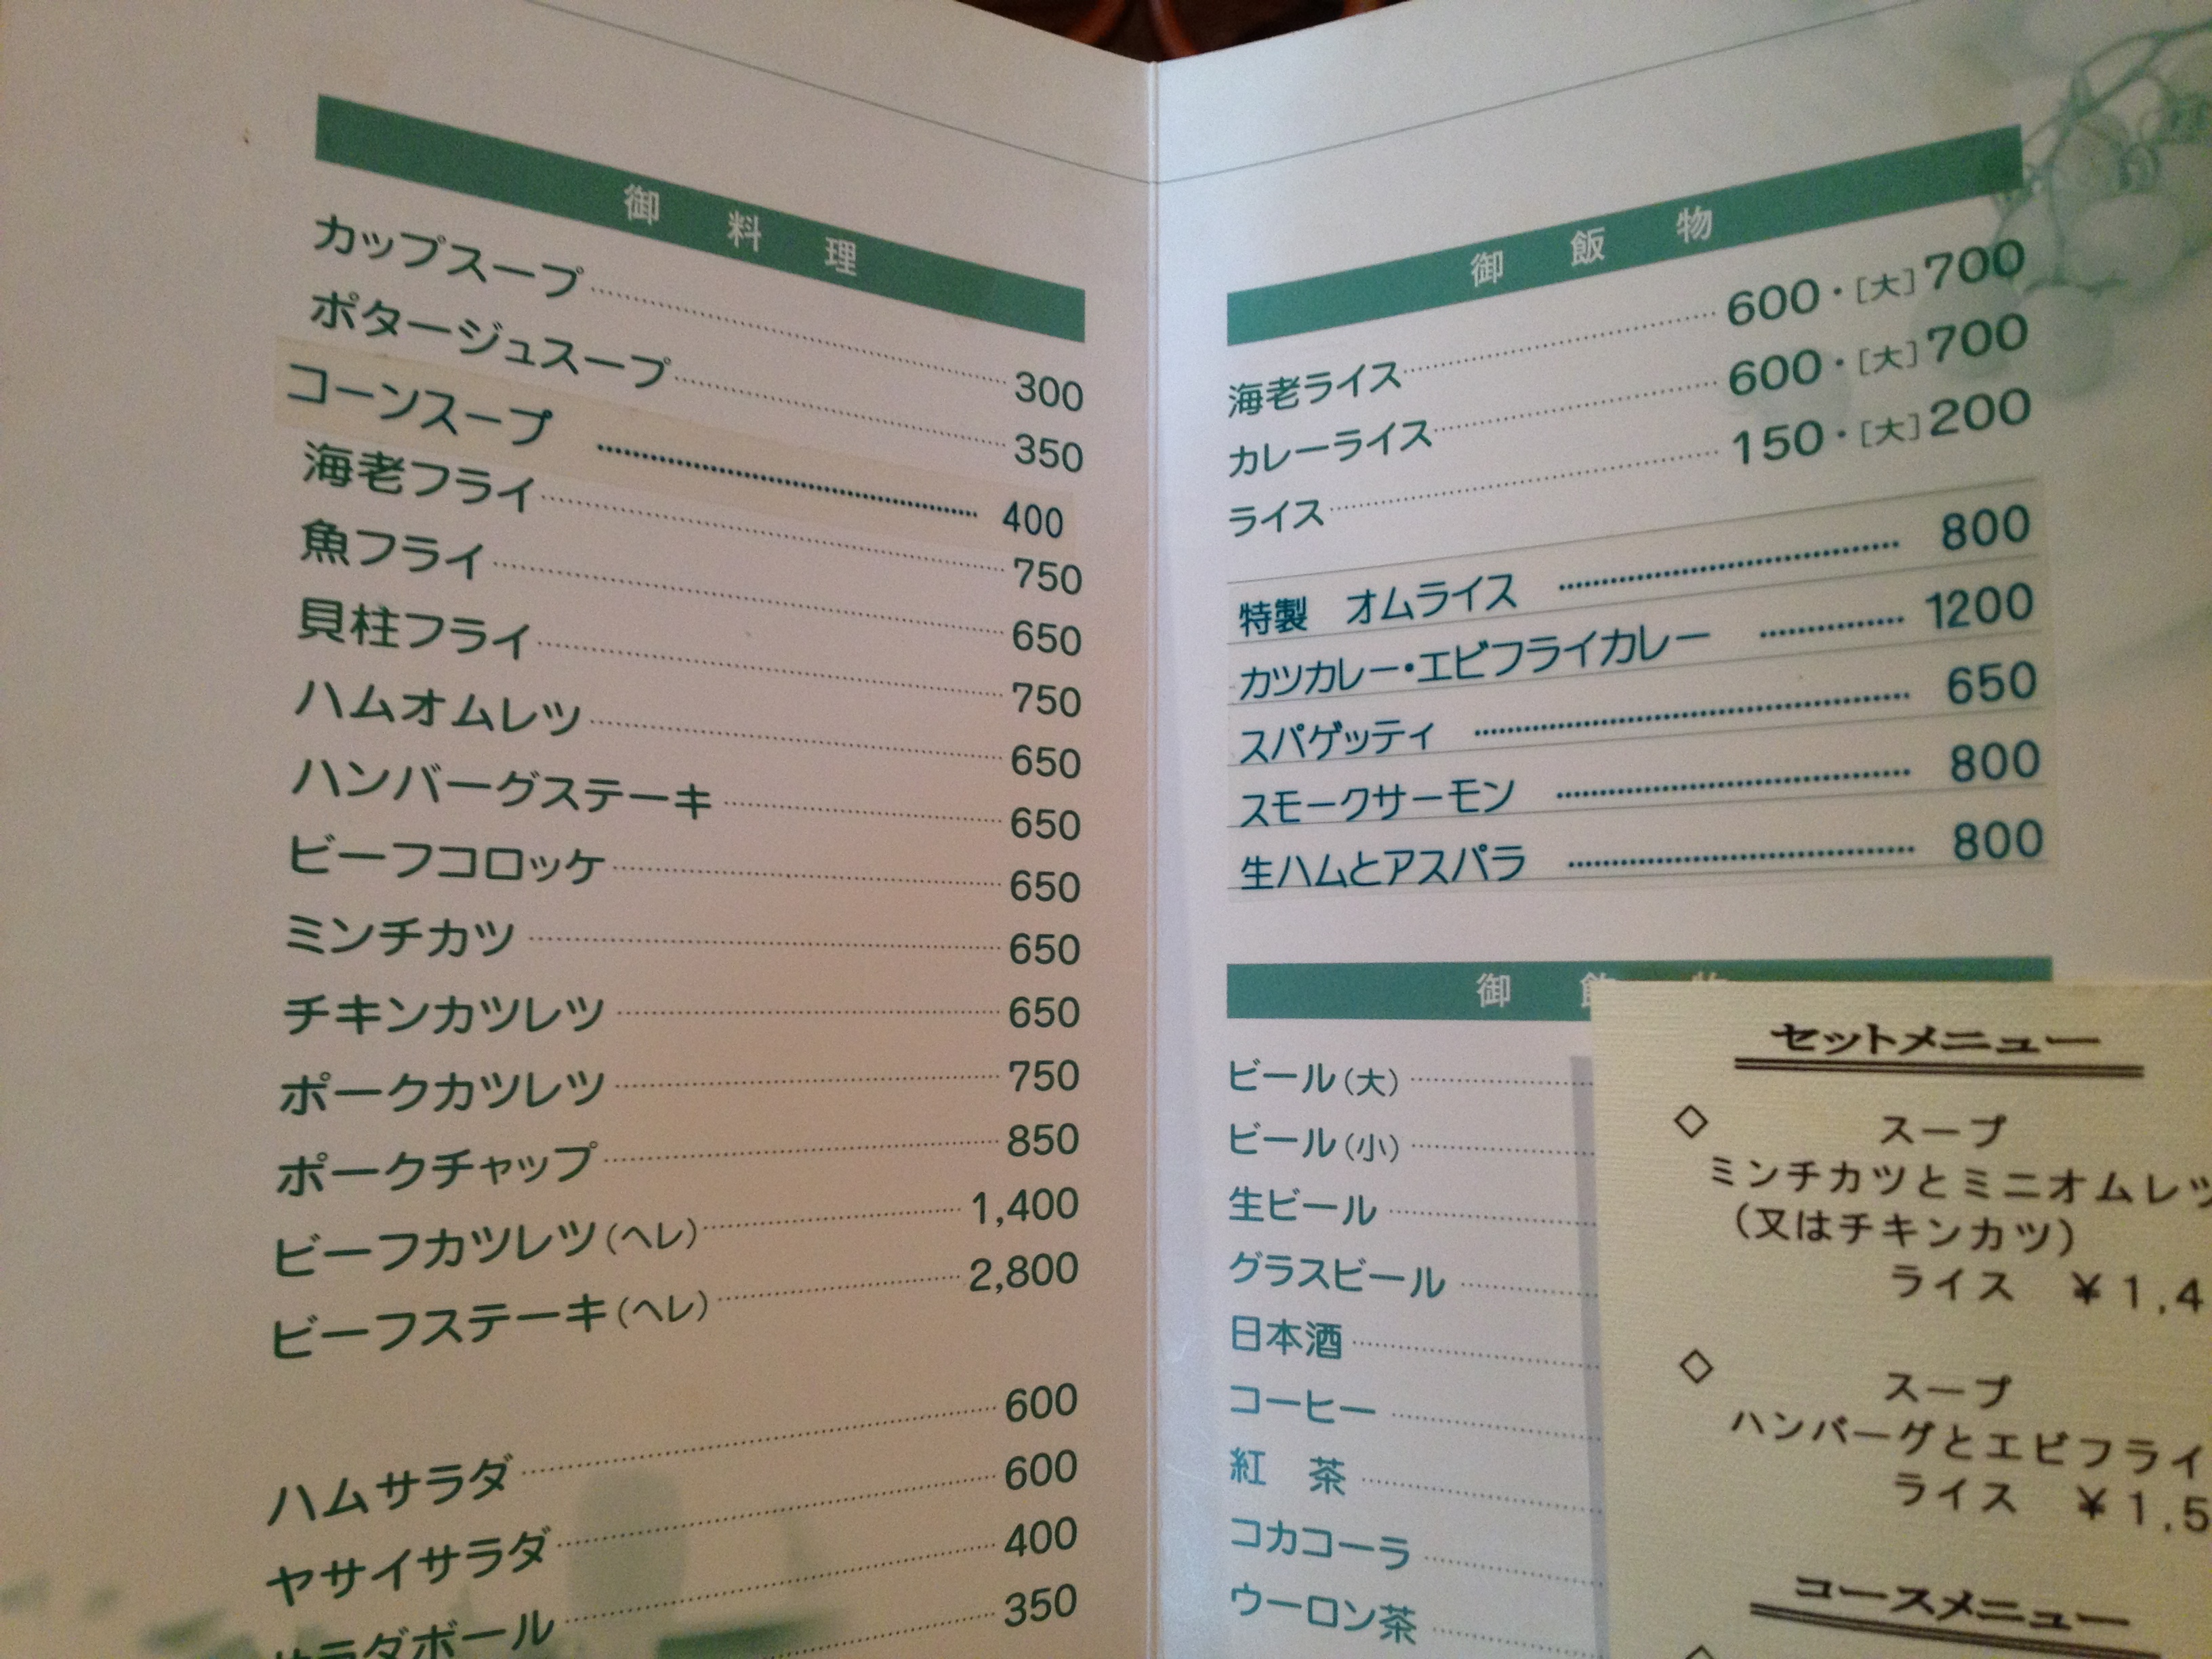 御料理
カップスープ 300
ポタージュスープ 350
コーンスープ 400
海老フライ 750
魚フライ 650
貝柱フライ 750
ハムオムレツ 650
ハンバーグステーキ 650
ビーフコロッケ 650
ミンチカツ 650
チキンカツレツ 650
ポークカツレツ 750
ポークチャップ 850
ビーフカツレツ(ヘレ) 1,400
ビーフステーキ(ヘレ) 2,800
ハムサラダ 600
ヤサイサラダ 600
サラダボール 400
350
御飯物
海老ライス 600・[大]700
カレーライス 600・[大]700
ライス 150・[大]200
特製 オムライス 800
カツカレー・エビフライカレー 1200
スパゲッティ 650
スモークサーモン 800
生ハムとアスパラ 800
御飲物
ビール(大)
ビール(小)
生ビール
グラスビール
日本酒
コーヒー
紅茶
コカコーラ
ウーロン茶
セットメニュー
◇ スープ
ミンチカツとミニオムレツ
(又はチキンカツ)
ライス ¥1,4
◇ スープ
ハンバーグとエビフライ
ライス ¥1,5
コースメニュー